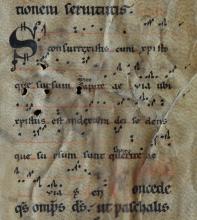 tionem servitutis.
Si consurrexistis cum xpisto
que sursum sapite ae via ubi
xpistus est in dexteram dei sedens
que su rsum sunt querite ae
via s en oncede
qs omps ds. ut paschalis